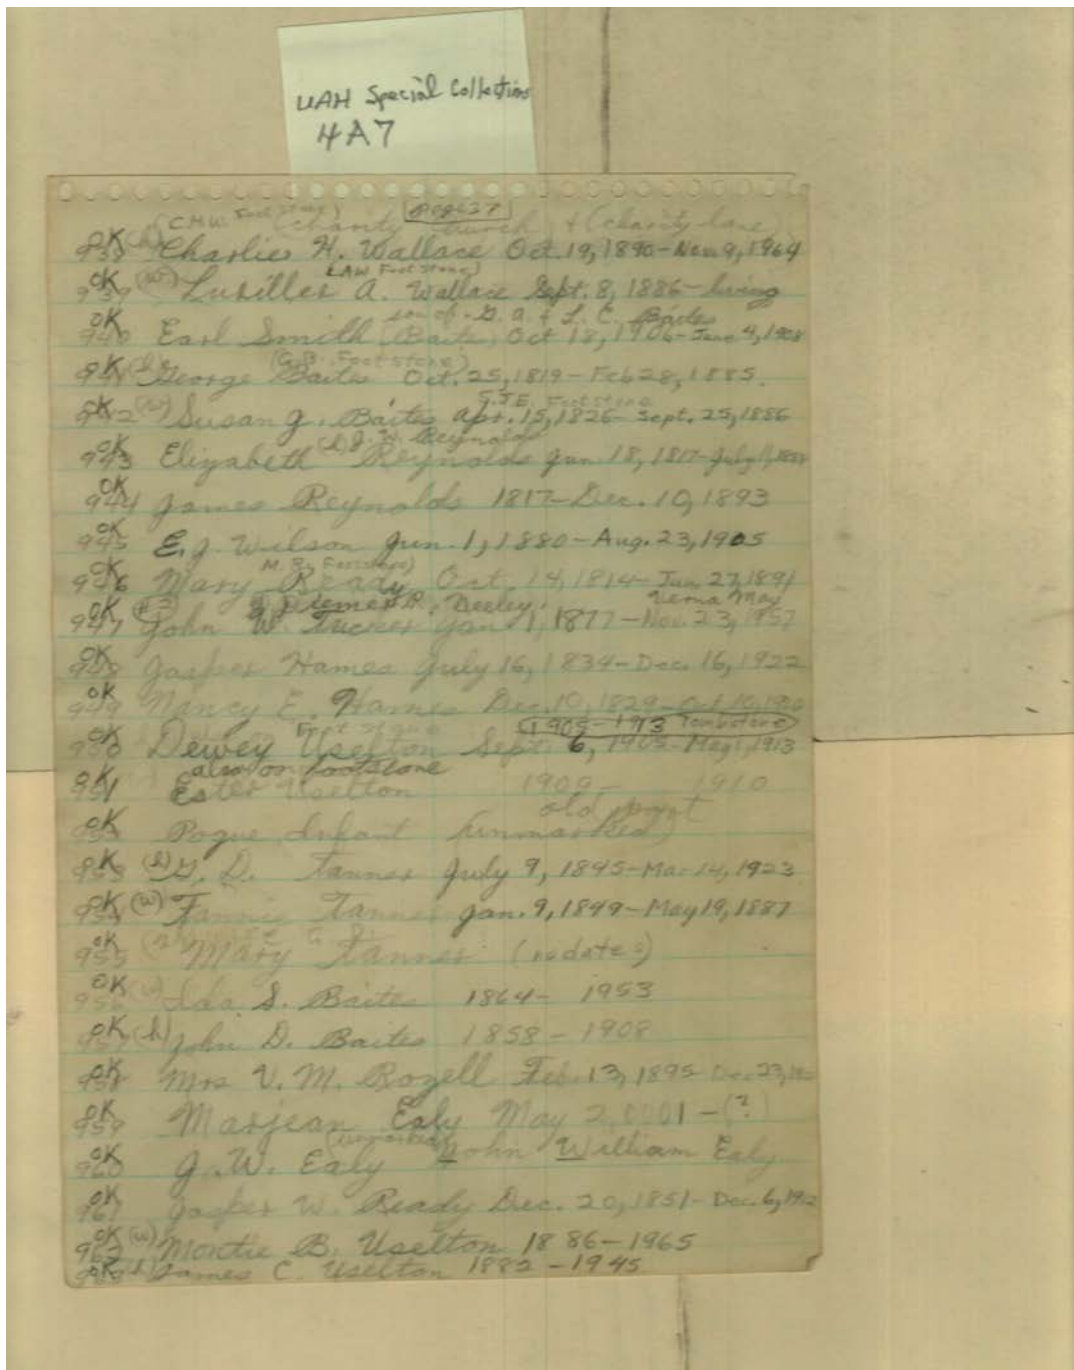 UAH Special Collections
4A7
page 37
(C.H.W. Foot Stone) Charity Church + (Charity Lane)
OK 938 (h) Charlie H. Wallace Oct. 19, 1890 - Nov. 9, 1964
LAW Foot Stone)
OK 939 (w) Luriller A. Wallace Sept. 8, 1886 - living
son of G. A. & L. C. Baites
OK 940 Earl Smith (Baites) Oct 18, 1906 - June 4, 1908
(G.B. Foot stone)
OK 941 (h) George Baites Oct. 25, 1819 - Feb 28, 1885.
S.J.E. Foot stone
OK 942 (w) Susan J. Baites Apr. 15, 1826 - Sept. 25, 1886
J. W. Reynolds
OK 943 Elizabeth Reynolds Jan. 18, 1817 - July
OK 944 James Reynolds 1817 - Dec. 10, 1893
OK 945 E. J. Wilson Jun. 1, 1880 - Aug. 23, 1905
M. R. Footstone)
OK 946 Mary Ready Oct. 14, 1814 - Jan. 27, 1891
Verna May
OK 947 John W. Tucker Jan 1, 1877 - Nov. 23, 1957
OK 948 Jasper Hames July 16, 1834 - Dec. 16, 1922
OK 949 Nancy E. Hames Dec. 10, 1829 - Oct. 10,
Foot stone (1905 - 1913 Tombstone)
OK 950 Dewey Uselton Sept. 6, 1905 - May 1, 1913
also on footstone
OK 951 Ester Uselton 1909 - 1910
old part
OK 952 Pogue Infant (unmarked)
OK 953 (h) G. D. Tanner July 9, 1845 - Mar 14, 1923
OK 954 (w) Fannie Tanner Jan. 9, 1849 - May 19, 1887
OK 955 Mary Tanner (no dates)
OK 956 (w) Ida S. Baites 1864 - 1953
OK 957 (h) John D. Baites 1858 - 1908
OK 958 Mrs V. M. Rozell Feb. 13, 1895 - Dec. 23,
OK 959 Marjean Ealy May 2, 0001 - (?)
(unmarked)
OK 960 J. W. Ealy John William Ealy
OK 961 Jasper W. Ready Dec. 20, 1851 - Dec. 6, 1912
OK 962 (w) Montie B. Uselton 1886 - 1965
OK 963 (h) James C. Uselton 1882 - 1945